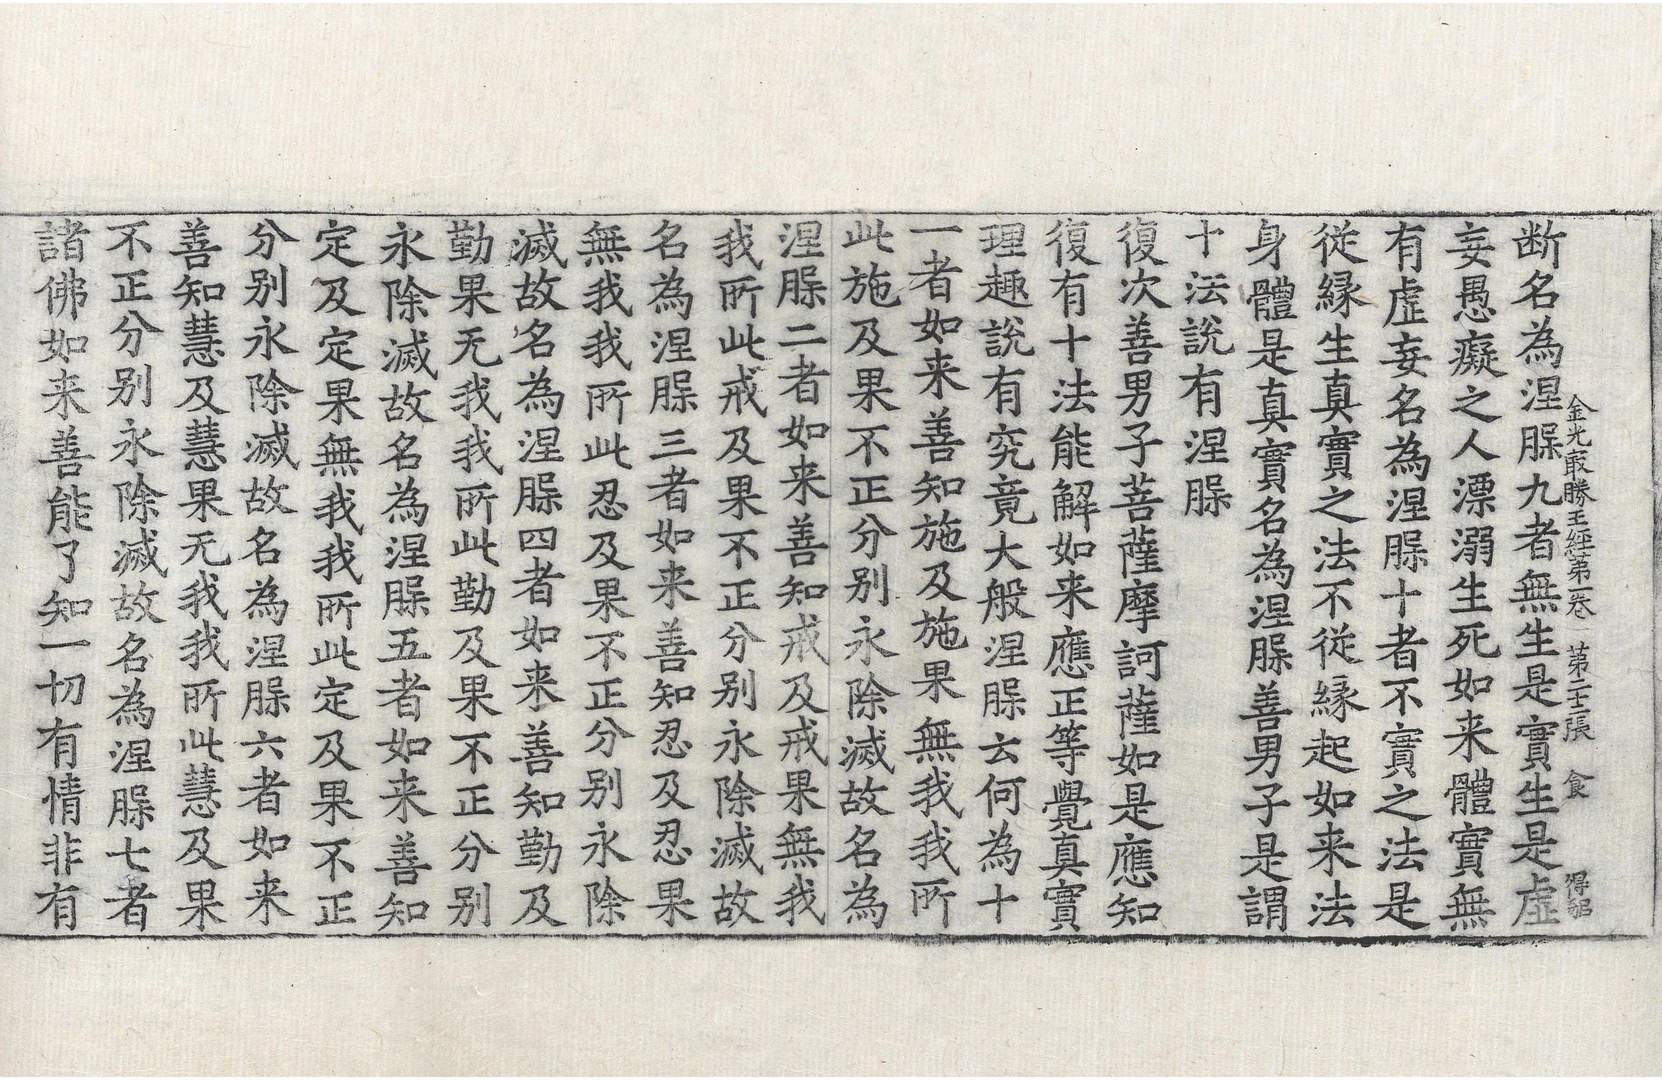 金光㝡勝王經第一卷　第二十張　食　得紹
断名為涅腺九者無生是實生是虛
妄愚癡之人漂溺生死如来體實無
有虛妄名為涅腺十者不實之法是
從縁生真實之法不從縁起如来法
身體是真實名為涅腺善男子是謂
十法説有涅腺
復次善男子菩薩摩訶薩如是應知
復有十法能解如来應正等覺真實
理趣說有究竟大般涅腺云何為十
一者如来善知施及施果無我我所
此施及果不正分别永除滅故名為
涅腺二者如来善知戒及戒果無我
我所此戒及果不正分别永除滅故
名為涅腺三者如来善知忍及忍果
無我我所此忍及果不正分别永除
滅故名為涅腺四者如来善知勤及
勤果无我我所此勤及果不正分别
永除滅故名為涅腺五者如来善知
定及定果無我我所此定及果不正
分别永除滅故名為涅腺六者如来
善知慧及慧果无我我所此慧及果
不正分别永除滅故名為涅腺七者
諸佛如来善能了知一切有情非有